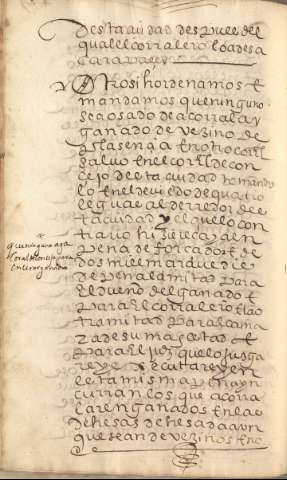 desta ciudad despues del
qual el corralero lo a de sa
car a valer
Otrosi hordenamos e
mandamos que ninguno
sea osado de acorralar
ganado de vezino de
plasençia en otro corral
salvo en el corral de con
cejo desta ciudad ni meter
lo en el
leguas al derredor de e
sta cuidad y el que lo con
trario hiziere cayga en
pena de forçador e de
dos mill maravedis
de pena la mitad para
el dueño del ganado e
para el corralero e la o
tra mitad para la cama
ra de su magestad e
para el juez que lo juzga
re y executare y en
esta misma pena yn
curran los que acorra
laren ganados en las
dehesas dehesadas avn
que sean de vezinos e no
que ninguno aga
corral
encerrar ganado